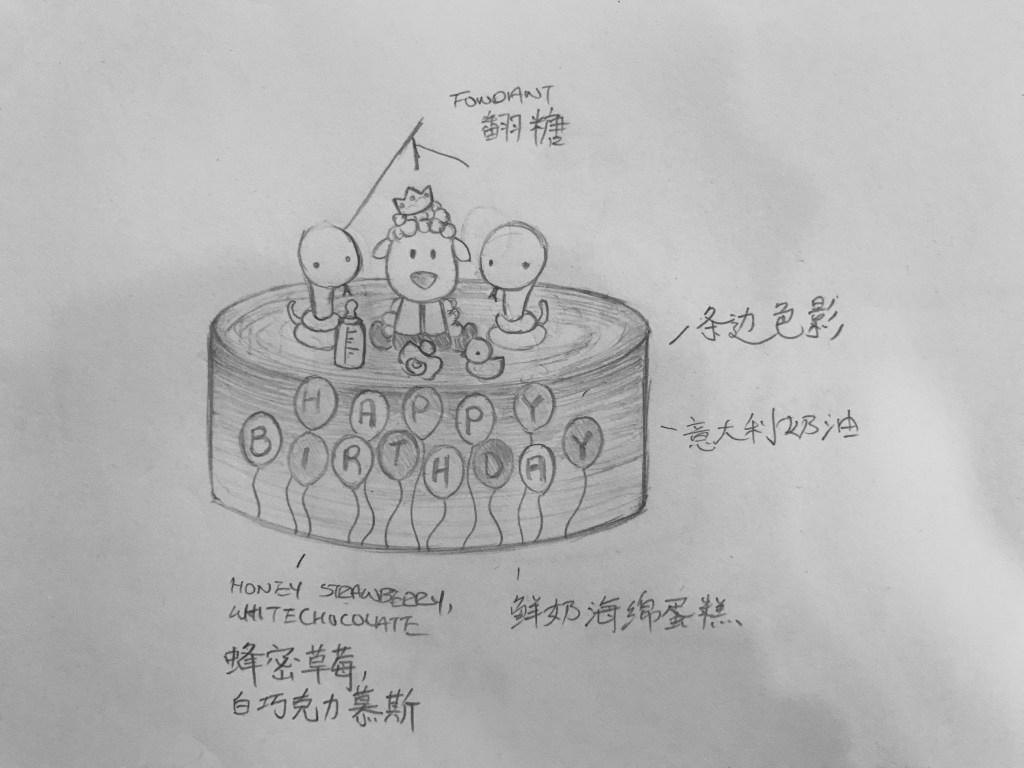 FONDANT
翻糖
条边色影
意大利奶油
HAPPY
BIRTHDAY
HONEY STRAWBEERY,
WHITECHOCOLATE
蜂密草莓,
白巧克力慕斯
鲜奶海绵蛋糕